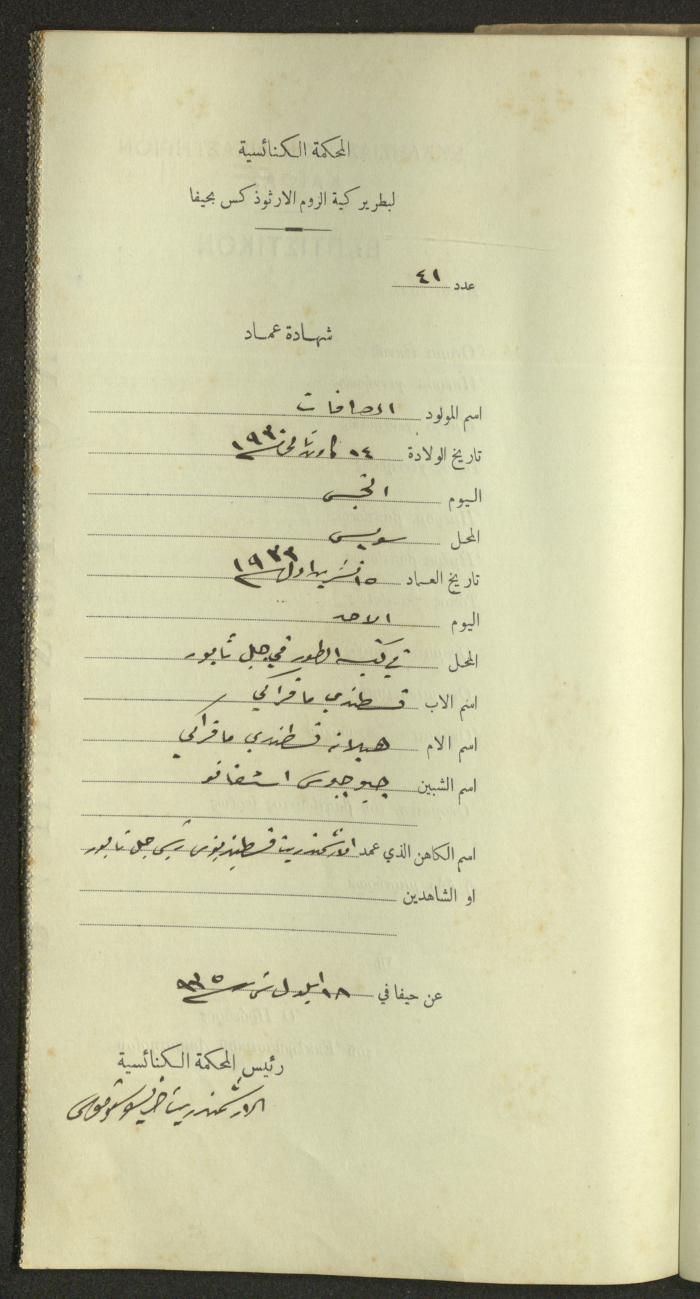 المحكمة الكنائسية
لبطريركية الروم الارثوذكس بحيفا
عدد ٤١
شهادة عماد
اسم المولود
تاريخ الولادة ١٤ كانون ثاني ١٩٣٠
اليوم
المحل سويس
تاريخ العماد ١٥ تشرين اول ١٩٣٣
اليوم الاحد
المحل في كنيسة الطور في جبل ثابور
اسم الاب قسطندي مافراكي
اسم الام هيلانه قسطندي مافراكي
اسم الشبين جيوجيوس استفانو
اسم الكاهن الذي عمد الارشمندريت رئيس جبل ثابور
او الشاهدين
عن حيفا في ١٨ ايلول سنة ٩٣٥
رئيس المحكمة الكنائسية
الارشمندريت